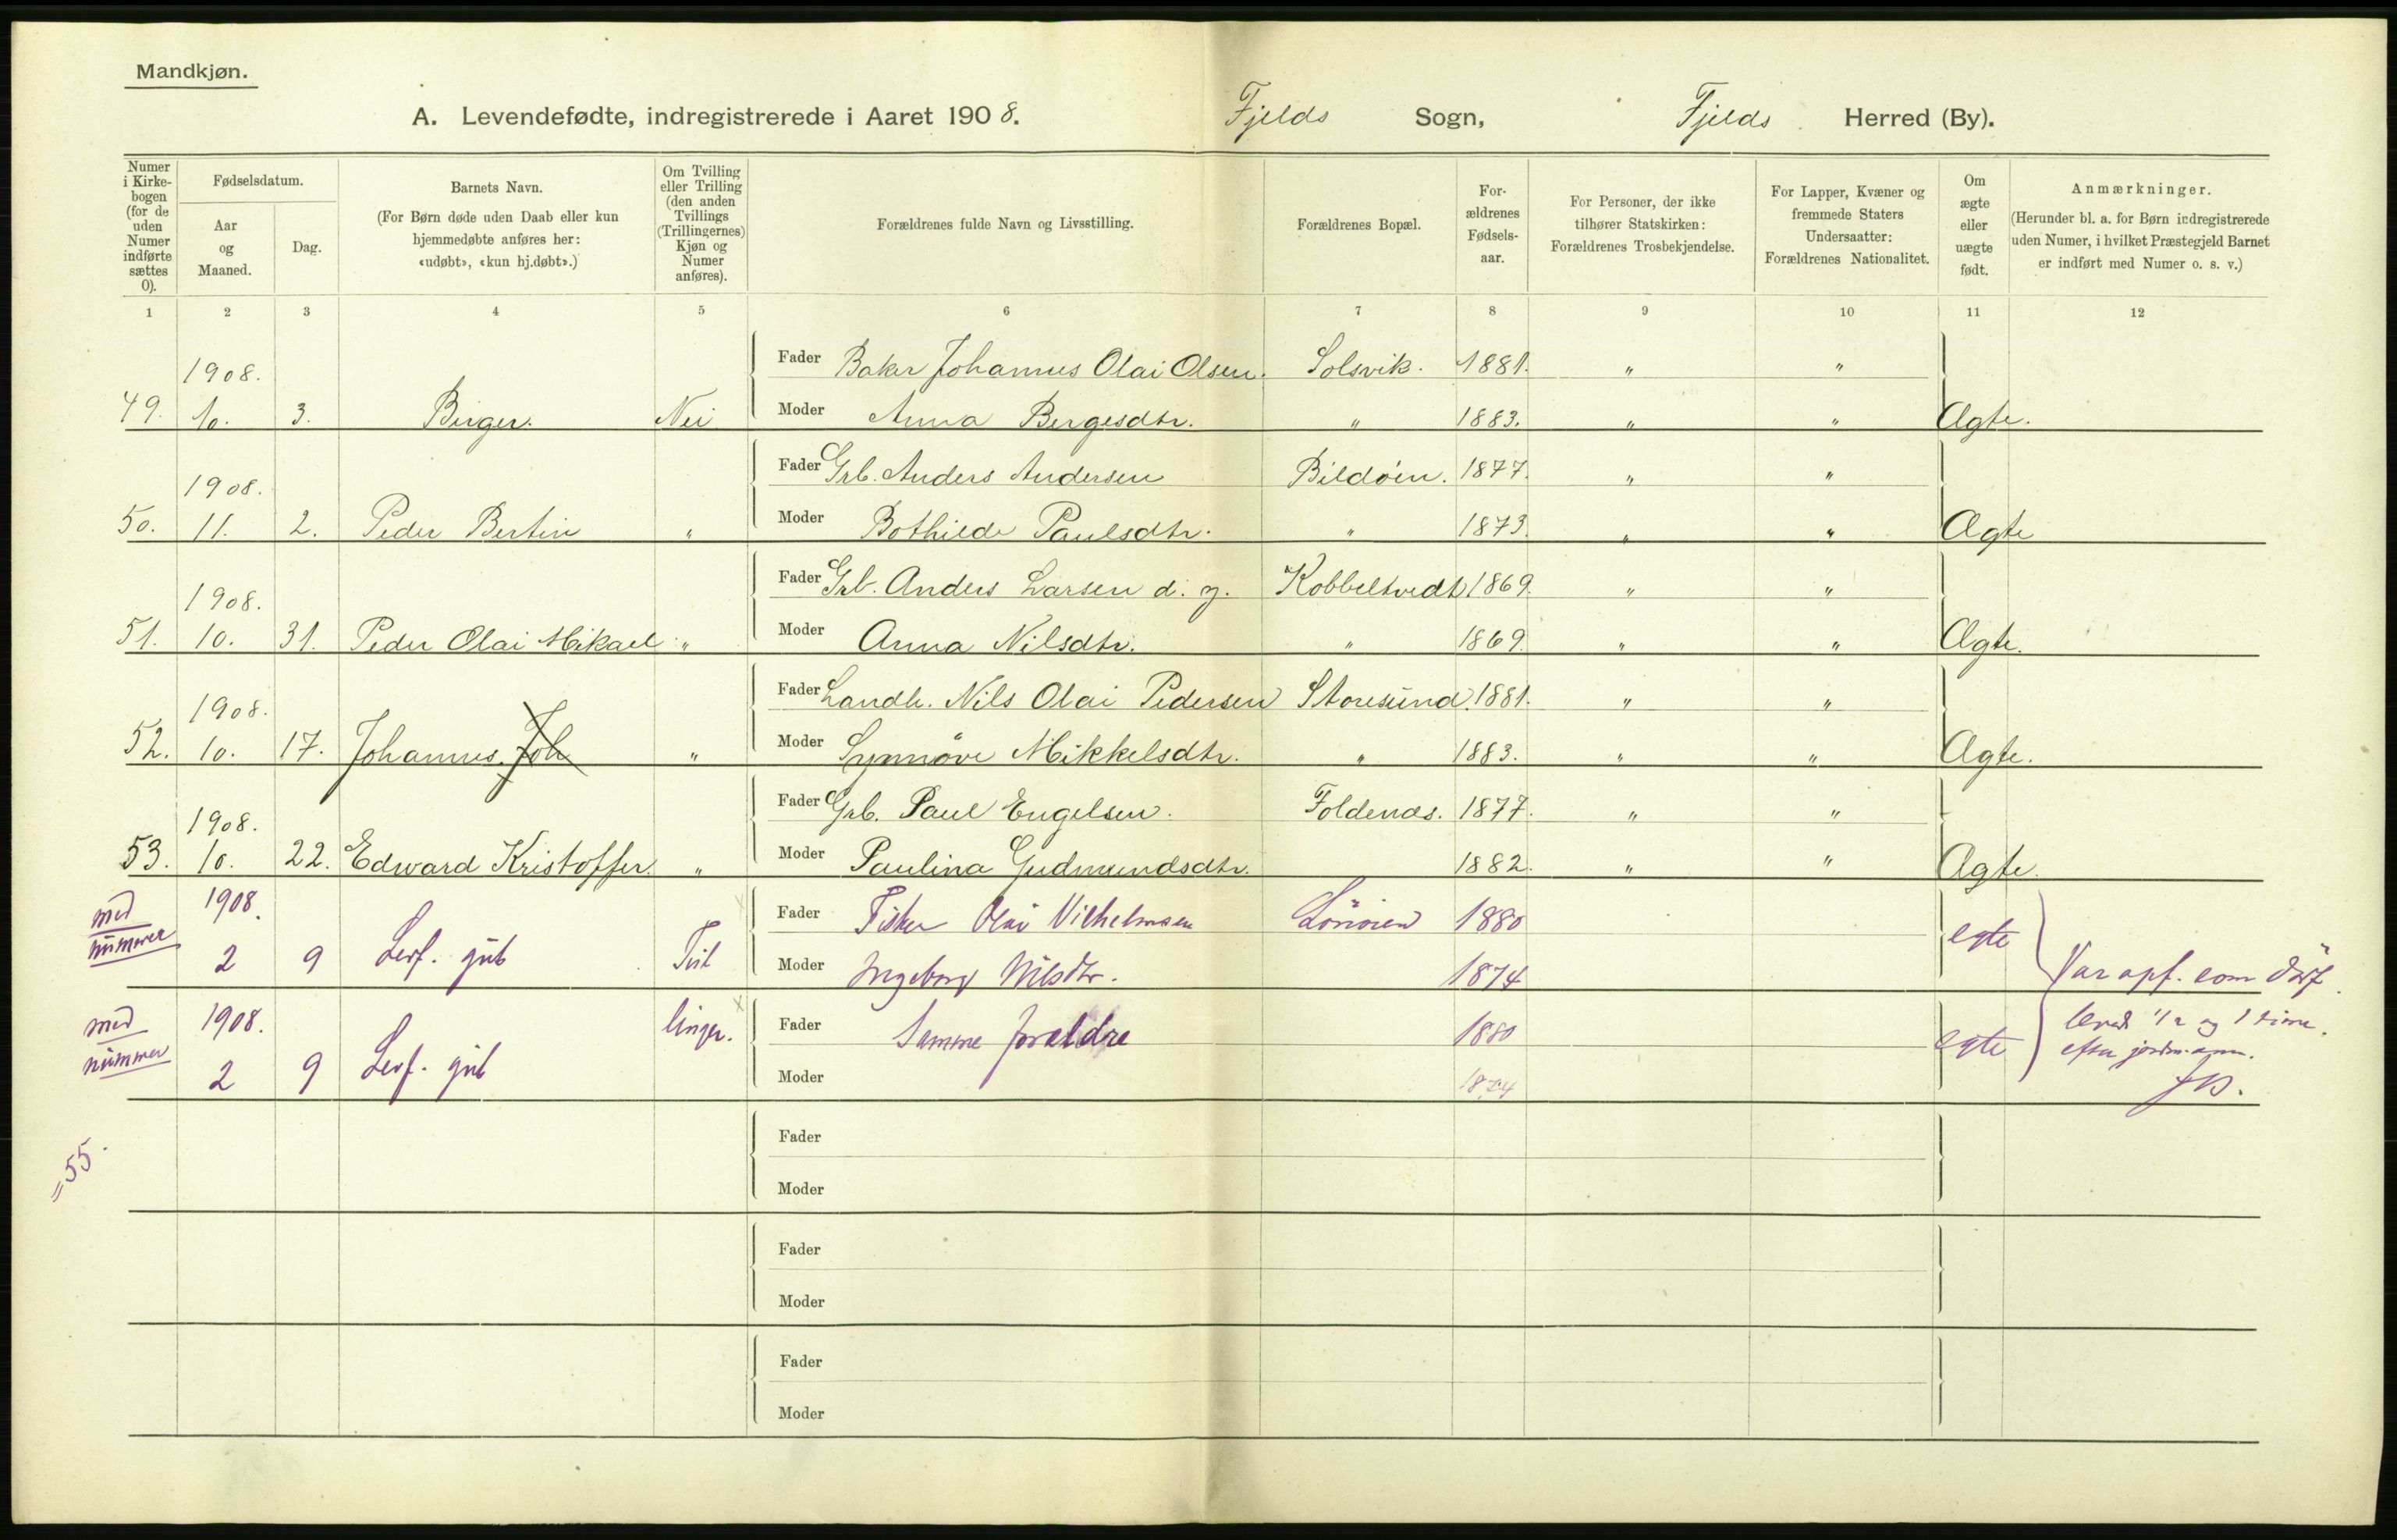 Mandkjøn.
A. Levendefødte, indregistrerede i Aaret 1908. Fjelds Sogn, Fjelds Herred (By).
Numer i Kirke-bogen (for de uden Numer indførte sættes 0).
Fødselsdatum.
Aar og Maaned.
Dag.
Barnets Navn.
(For Børn døde uden Daab eller kun hjemmedøbte anføres her: «udøbt», «kun hj.døbt».)
Om Tvilling eller Trilling (den anden Tvillings (Trillingernes) Kjøn og Numer anføres).
Forældrenes fulde Navn og Livsstilling.
Forældrenes Bopæl.
For-ældrenes Fødsels-aar.
For Personer, der ikke tilhører Statskirken: Forældrenes Trosbekjendelse.
For Lapper, Kvæner og fremmede Staters Undersaatter: Forældrenes Nationalitet.
Om ægte eller uægte født.
Anmærkninger.
(Herunder bl. a. for Børn indregistrerede uden Numer, i hvilket Præstegjeld Barnet er indført med Numer o. s. v.)
1 2 3 4 5 6 7 8 9 10 11 12
1908. Fader Baker Johannes Olai Olsen. Solsvik. 1881. " "
49. 10. 3. Birger. Nei Moder Anna Bergesdtr. " 1883. " " Ægte.
1908. Fader Grb. Anders Andersen Bildöen. 1877. " "
50. 11. 2. Peder Bertin " Moder Bothilde Paulsdtr. " 1873. " " Ægte
1908. Fader Grb. Anders Larsen d. y. Kobbeltvedt 1869. " "
51. 10. 31. Peder Olai Mikael " Moder Anna Nilsdtr. " 1869. " " Ægte.
1908. Fader Landh. Nils Olai Pedersen Storesund. 1881. " "
52. 10. 17. Johannes. Joh " Moder Synnöve Mikkelsdtr. " 1883. " " Ægte.
1908. Fader Grb. Paul Engelsen. Foldenæs. 1877. " "
53. 10. 22. Edward Kristoffer. " Moder Paulina Gudmundsdtr. 1882. " " Ægte.
med 1908. Fader Fisker Olai Vilhelmsen 1880 egte
nummer 2 9 Levf. gut Moder Ingeborg Nilsdtr. 1874 Var opf. som död
med 1908. linger. Fader Samme forældre 1880 egte levede 1/2 og 1 time.
nummer 2 9 Levf. gut Moder 1874 efter
= 55.
Fader
Moder
Fader
Moder
Fader
Moder